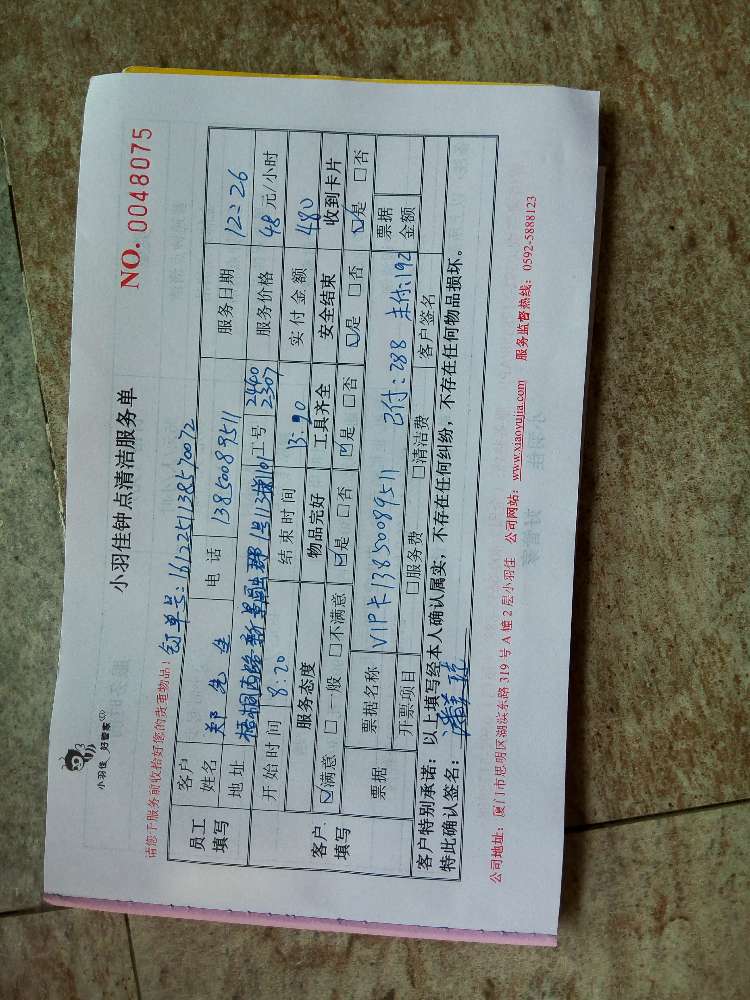 小羽佳 好管家
小羽佳钟点清洁服务单
NO. 0048075
请您予服务前收拾好您的贵重物品！ 订单号：16122511385 70072
员工填写 客户姓名 郑先生 电话 13850089511 服务日期 12:26
地址 梧桐西路新景融郡 工号 2440 2307 服务价格 48元/小时
开始时间 8:20 结束时间 13:20 实付金额 480
客户填写 服务态度 物品完好 工具齐全 安全结束 收到卡片
☑满意 □一般 □不满意 ☑是 □否 ☑是 □否 ☑是 □否 ☑是 □否
票据 票据名称 VIP卡13850089511 已付：288 未付：192 票据金额
开票项目 □服务费 □清洁费 客户签名
客户特别承诺：以上填写经本人确认属实，不存在任何纠纷，不存在任何物品损坏。
特此确认签名：
公司地址：厦门市思明区湖滨东路319号A幢2层小羽佳 公司网站：www.xiaoyujia.com 服务监督热线：0592-5888123